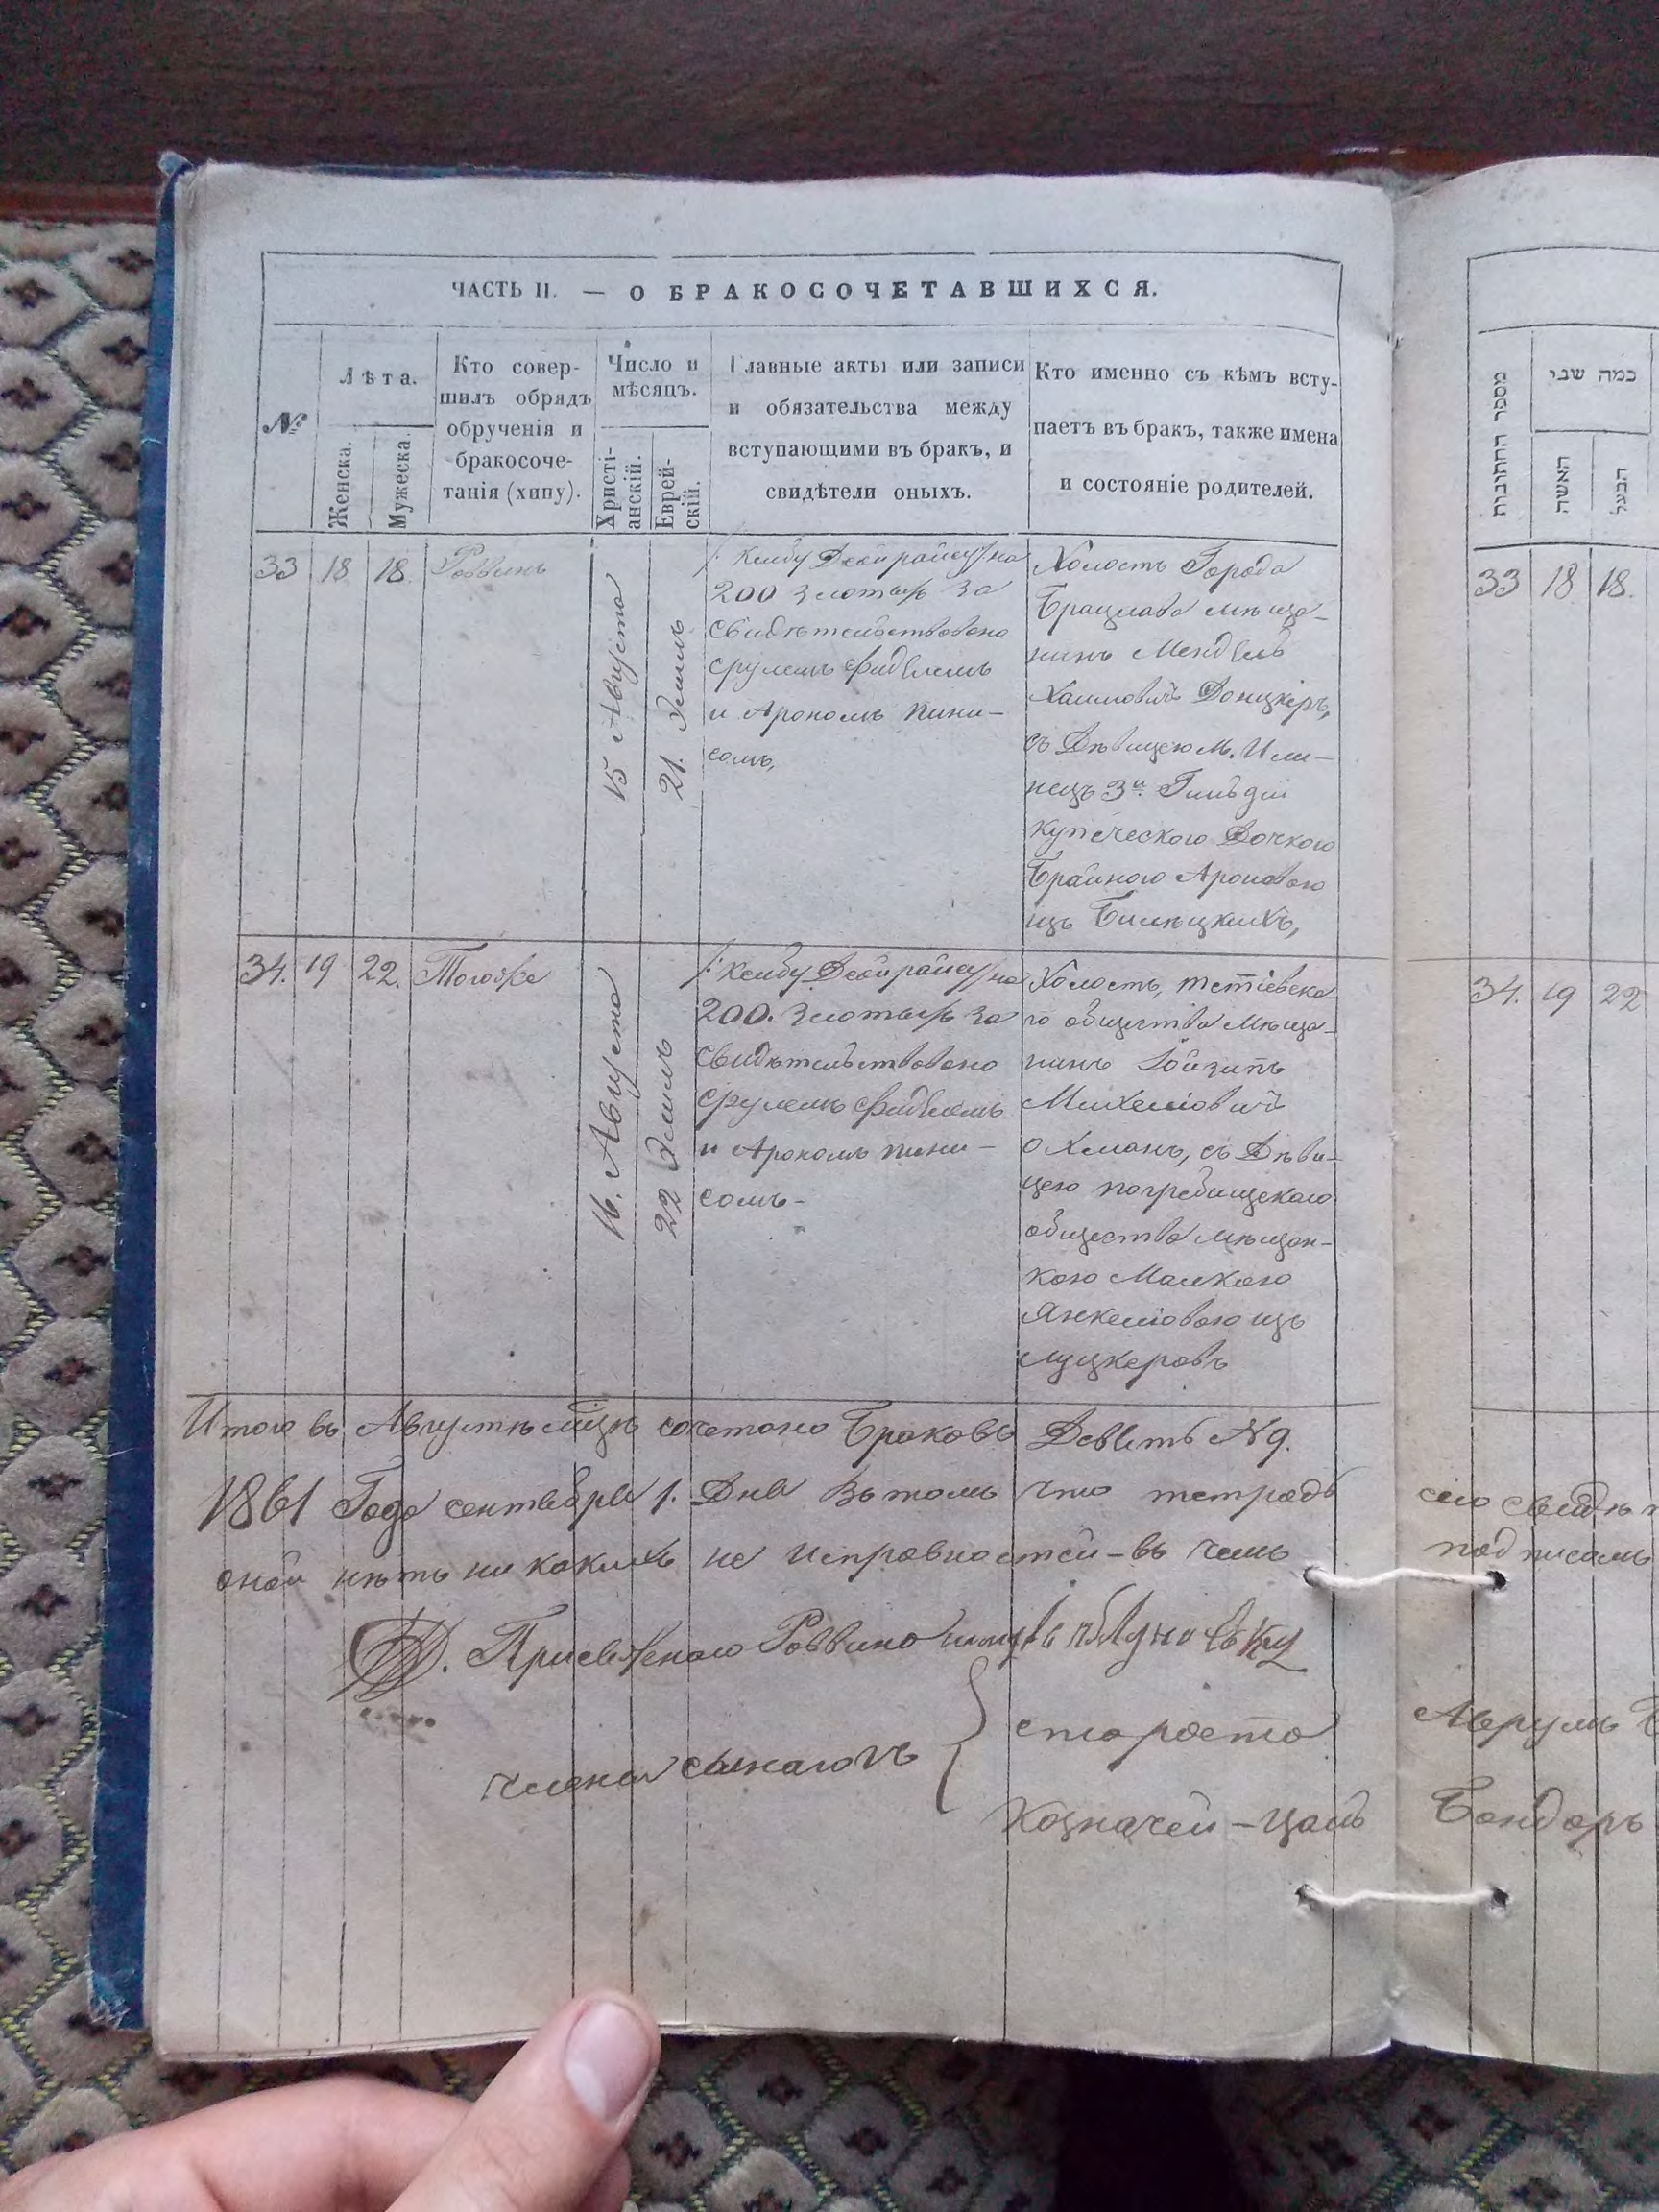 ЧАСТЬ II. — О БРАКОСОЧЕТАВШИХСЯ.
№
Лѣта.
Женска.
Мужеска.
Кто совер-
шилъ обрядъ
обрученія и
бракосоче-
танія (хипу).
Число и
мѣсяцъ.
Христі-
анскій.
Еврей-
скій.
Главные акты или записи
и обязательства между
вступающими въ бракъ, и
свидѣтели оныхъ.
Кто именно съ кѣмъ всту-
паетъ въ бракъ, также имена
и состояніе родителей.
33 18 18. Раввинъ
15 Августа
21. Элиль
/: Кснбу Дебирайсу/: на
200 злотыхъ за
свидѣтельствовано
Срулемъ Фидлемъ
и Арономъ Пини-
сомъ,
Холостъ Города
Брацлава мѣща-
нинъ Мендель
Хаимовичъ Доницкеръ,
съ Дѣвицею М. Или-
нецъ 3й Гильдіи
купеческого Дочкою
Брайною Ароновою
изъ Билѣцкихъ,
34. 19 22. Тогоже
16. Августа
22 Элиль
/: Кснбу Дебирайсу/ на
200. злотыхъ за
свидѣтельствовано
Срулемъ Фидлемъ
и Арономъ Пини-
сомъ-
Холостъ, тетіевска-
го общества мѣща-
нинъ Іойзипъ
Михеліовичъ
Охманъ, съ Дѣви-
цею погребищскаго
общества мѣщан-
кою Малкою
Янкеліовою изъ
Луцкеровъ
Итого въ Августѣ мцѣ сочетано Браковъ Девять № 9.
1861 Года сентября 1. Дня въ томъ что тетрадь
оной нѣтъ ни какихъ не исправностей - въ чемъ
Присяжного Раввина
члены сынагогъ
староста
Казначей - Цаль
מספר החתונות
כמה שני
האשה
הבעל
33 18 18.
34. 19 22
сею
подписомъ
Аврумъ
Бондарь